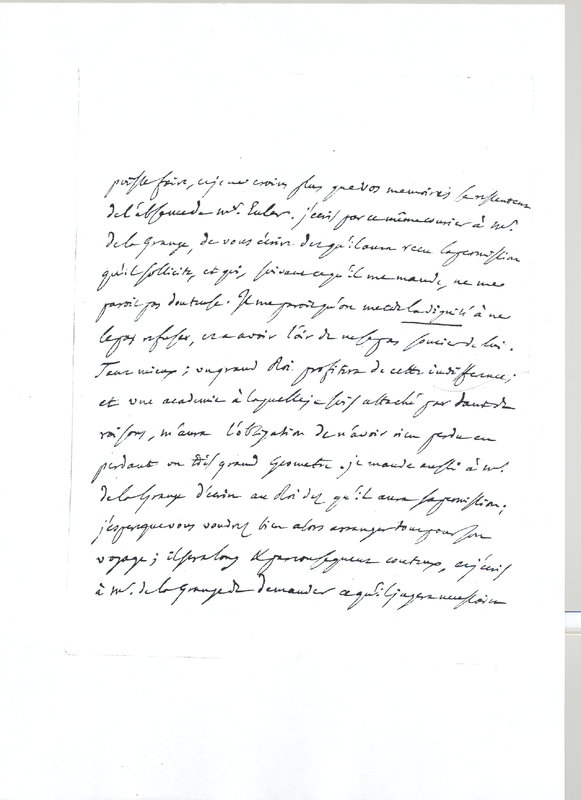 puisse faire, et je ne crois plus que vos memoires se ressentent
de l'absence de mr. Euler. j'écris par ce même courier à mr.
de la Grange, de vous écrire dez qu'il aura reçu la permission
qu'il sollicite, et qui, suivant ce qu'il me mande, ne me
paroit pas douteuse. Il me paroit qu'on met de la dignité à ne
le pas refuser, et a avoir l'air de ne se pas soucier de lui.
Tant mieux; un grand Roi profitera de cette indifference;
et une academie à laquelle je suis attaché par tant de
raisons, m'aura l'obligation de n'avoir rien perdu en
perdant un très grand Geometre. je mande aussi à mr.
de la Grange d'écrire au Roi dez qu'il aura sa permission;
j'espere que vous voudrez bien alors arranger tout pour son
voyage; il sera long et par consequent couteux, et j'écris
à mr. de la Grange de demander ce qu'il jugera necessaire